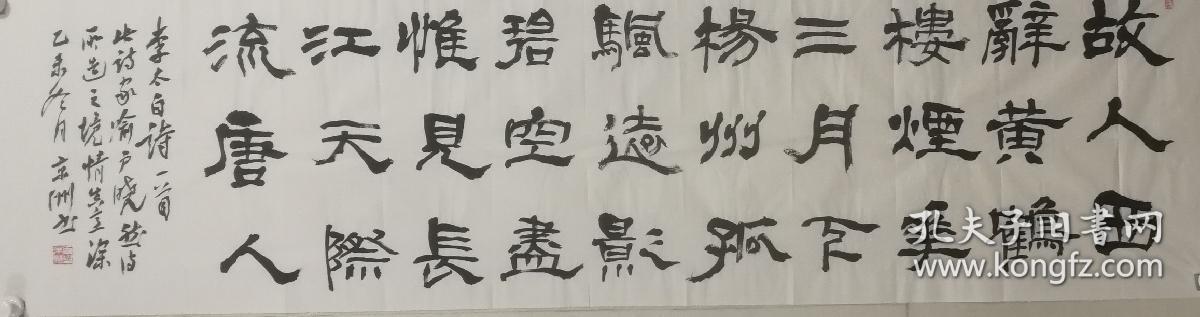 故人西
辭黄鶴
樓煙華
三月下
楊州孤
颿遠影
碧空盡
惟見長
江天際
流唐人
李太白詩一首
此詩家喻户曉
所造之境情
乙未冬月
孔夫子旧書网
www.kongfz.com